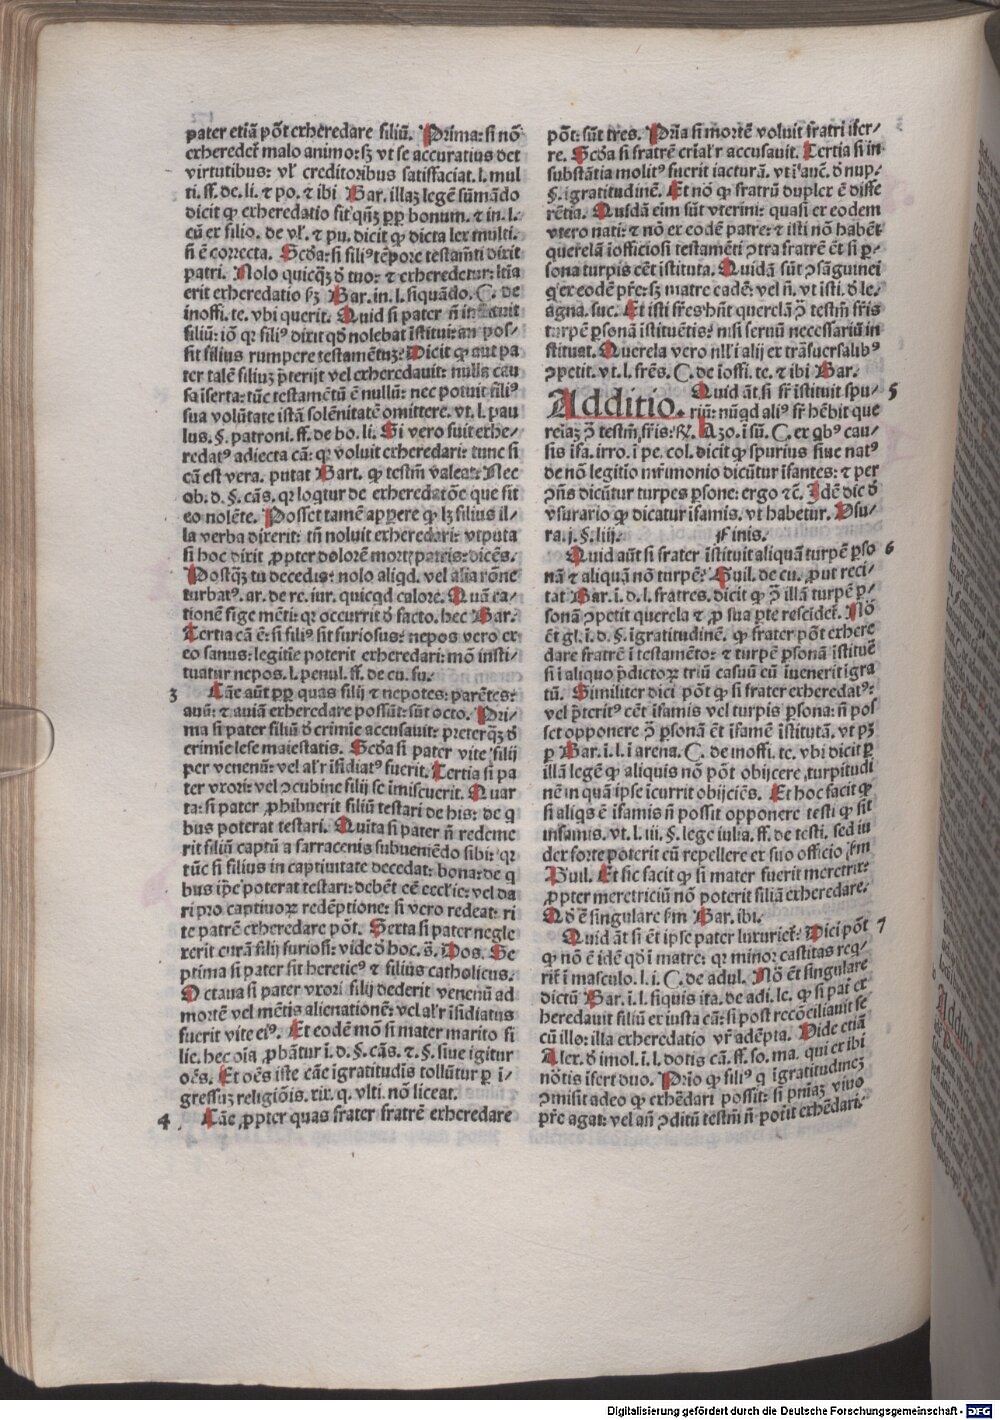 pater etiã põt exheredare filiũ. Prima: si nõ
exheredet̃ malo animo: sʒ vt se accuratius det
virtutibus: vł creditoribus satisfaciat. l. mul
ti. ff. de. li. ⁊ po. ⁊ ibi Bar. illaʒ legẽ sũmãdo
dicit ꝙ exheredatio sit qñʒ ꝓp bonum. ⁊ in. l.
cũ ex filio. de vł. ⁊ pu. dicit ꝙ dicta lex multi.
ñ ẽ correcta. Scðа: si filiꝰ tẽpore testam̃ti dixit
patri. Nolo quicqʒ ð tuo: ⁊ exheredetur: ltĩa
erit exheredatio ſʒ Bar. in. l. siquãdo. C. de
inoffi. te. vbi querit. Quid si pater ñ instituit
filiũ: iõ qꝛ filiꝰ dixit qð nolebat ĩstitui: an pos⸗
sit filius rumpere testamẽtuʒ? Dicit ꝙ aut pa
ter talẽ filiuʒ p̃terijt vel exheredauit: nulla cau
sa ĩserta: tũc testamẽtũ ẽ nullũ: nec potuit filiꝰ
sua volũtate istã solẽnitatẽ omittere. vt. l. pau
lus. §. patroni. ff. de bo. li. Si vero fuit exhe⸗
redatꝰ adiecta cã: qꝛ voluit exheredari: tunc si
cã est vera. putat Bart. ꝙ testm̃ valeat. Nec
ob. d. §. cãs. qꝛ loqtur de exheredatõe que sit
eo nolẽte. Posset tamẽ apꝑere ꝙ lʒ filius il⸗
la verba dixerit: tñ noluit exheredari: vtputa
si hoc dixit ꝓpter dolorẽ mortꝭ patris: dicẽs.
Postqʒ tu decedis: nolo aliqd. vel alia rõne
turbatꝰ. ar. de re. iur. quicqd calore. Quã ra⸗
tionẽ fige mẽti: qꝛ occurrit ð facto. hec Bar.
Tertia cã ẽ: si filiꝰ sit furiosus: nepos vero ex
eo sanus: legitĩe poterit exheredari: mõ insti⸗
tuatur nepos. l. penul. ff. de cu. fu.
3 Cãe aũt ꝓp quas filij ⁊ nepotes: parẽtes:
auũ: ⁊ auiã exheredare possũt: sũt octo. Pri⸗
ma si pater filiũ ð crimĩe accusauit: preterqʒ ð
crimĩe lese maiestatis. Scða si pater vite filij
per venenũ: vel alr̃ ĩsidiatꝰ fuerit. Tertia si pa
ter vxori: vel ꝯcubine filij se ĩmiscuerit. Quar
ta: si pater ꝓhibuerit filiũ testari de his: de q
bus poterat testari. Quĩta si pater ñ redeme
rit filiũ captũ a sarracenis subueniẽdo sibi: qꝛ
tũc si filius in captiuitate decedat: bona: de q
bus ip̃e poterat testari: debẽt eẽ eccl̃ie: vel da
ri pro captiuoꝝ redẽptione: si vero redeat: ri
te patrẽ exheredare põt. Sexta si pater negle
xerit curã filij furiosi: vide ð hoc. s̃. Dos. Se
ptima si pater sit hereticꝰ ⁊ filius catholicus.
Octaua si pater vxori filij dederit venenũ ad
mortẽ vel mẽtis alienationẽ: vel al'r ĩsidiatus
fuerit vite eiꝰ. Et eodẽ mõ si mater marito fi
lie. hec oĩa ꝓbãtur ĩ. d. §. cãs. ⁊. §. siue igitur
oẽs. Et oẽs iste cãe ĩgratitudĩs tollũtur ꝑ ĩ⸗
gressuʒ religiõis. xix. q. vlti. nõ liceat.
4 Cãe ꝓpter quas frater fratrẽ exheredare
põt: sũt tres. Pr̃ia si mortẽ voluit fratri ĩfer⸗
re. Scða si fratrẽ crĩal'r accusauit. Tertia si in
substãtia molitꝰ fuerit iacturã. vt ĩ auẽ. ð nup⸗
§. igratitudinẽ. Et nõ ꝙ fratrũ duplex ẽ diffe
rẽtia. Quidã eĩm sũt vterini: quasi ex eodem
vtero nati: ⁊ nõ ex eodẽ patre: ⁊ isti nõ habẽt
querelã ĩofficiosi testamẽti ꝯtra fratrẽ ẽt si ꝑ⸗
sona turpis eẽt ĩstituta. Quidã sũt ꝯsãguinei
q̃ ex eodẽ pr̃e: sʒ matre eadẽ: vel ñ. vt ĩsti. ð le.
agna. suc. Et isti fr̃es hñt querelã ꝯ̃ testm̃ fr̃is
turpẽ ꝑsonã ĩstituẽtis: nisi seruũ necessariũ in
stituat. Querela vero nlĩ alij ex trãsuersalibꝰ
ꝯpetit. vt. l. fr̃es. C. de ioffi. te. ⁊ ibi Bar.
Additio. Quid ãt. si fr̃ ĩstituit spu⸗ 5
riũ: nũqd aliꝰ fr̃ hẽbit que
relaʒ ꝯ̃ testm̃ fr̃is: ꝶ. Azo. ĩ sũ. C. ex qbꝰ cau⸗
sis ĩfa. irro. ĩ pe. col. dicit ꝙ spurius siue natꝰ
de nõ legitĩo mr̃imonio dicũtur ĩfantes: ⁊ per
ꝯñs dicũtur turpes ꝑsone: ergo ⁊c̃. Idẽ dic ð
vsurario ꝙ dicatur ĩfamis. vt habetur. Vsu⸗
ra. j. §. liij. Finis.
Quid aũt si frater ĩstituit aliquã turpẽ ꝑso 6
nã ⁊ aliquã nõ turpẽ? Guil. de cu. ꝓut reci⸗
tat Bar. ĩ. d. l. fratres. dicit ꝙ ꝯ̃ illã turpẽ ꝑ⸗
sonã ꝯpetit querela ⁊ ꝓ sua ꝑte rescĩdet̃. Nõ
ẽt gl. ĩ. d. §. ĩgratitudinẽ. ꝙ frater põt exhere
dare fratrẽ ĩ testamẽto: ⁊ turpẽ ꝑsonã ĩstituẽ
si ĩ aliquo p̃dictoꝝ triũ casuũ eũ ĩuenerit ĩgra
tũ. Similiter dici põt ꝙ si frater exheredatꝰ:
vel p̃teritꝰ eẽt ĩfamis vel turpis ꝑsona: ñ pos
set opponere ꝯ̃ ꝑsonã ẽt ĩfamẽ ĩstitutã. vt pʒ
ꝑ Bar. ĩ. l. ĩ arena. C. de inoffi. te. vbi dicit ꝑ
illã legẽ ꝙ aliquis nõ põt obijcere turpitudi
nẽ in quã ipse ĩcurrit obijciẽs. Et hoc facit ꝙ
si aliqs ẽ ĩfamis ñ possit opponere testi ꝙ sit
infamis. vt. l. iij. §. lege iulia. ff. de testi. sed iu
dex forte poterit eũ repellere ex suo officio ſm
Guil. Et sic facit ꝙ si mater fuerit meretrix:
ꝓpter meretriciũ nõ poterit filiã exheredare.
Qð ẽ singulare ſm Bar. ibi.
Quid ãt si ẽt ipse pater luxuriet̃: Dici põt 7
ꝙ nõ ẽ idẽ qð ĩ matre: qꝛ minor castitas req̃⸗
rit̃ ĩ masculo. l. i. C. de adul. Nõ ẽt singulare
dictũ Bar. ĩ. l. siquis ita. de adi. le. ꝙ si pat̃ ex
heredauit filiũ ex iusta cã: si post recõciliauit se
cũ illo: illa exheredatio vr̃ adẽpta. Vide etiã
Alex. ð imol. ĩ. l. dotis cã. ff. so. ma. qui ex ibi
nõtis ĩsert duo. Prĩo ꝙ filiꝰ q ĩgratitudineʒ
ꝯmisit adeo ꝙ exhẽdari possit: si pr̃iaʒ viuo
pr̃e agat: vel añ ꝯditũ testm̃ ñ poñt exhẽdari.
Digitalisierung gefördert durch die Deutsche Forschungsgemeinschaft - DFG